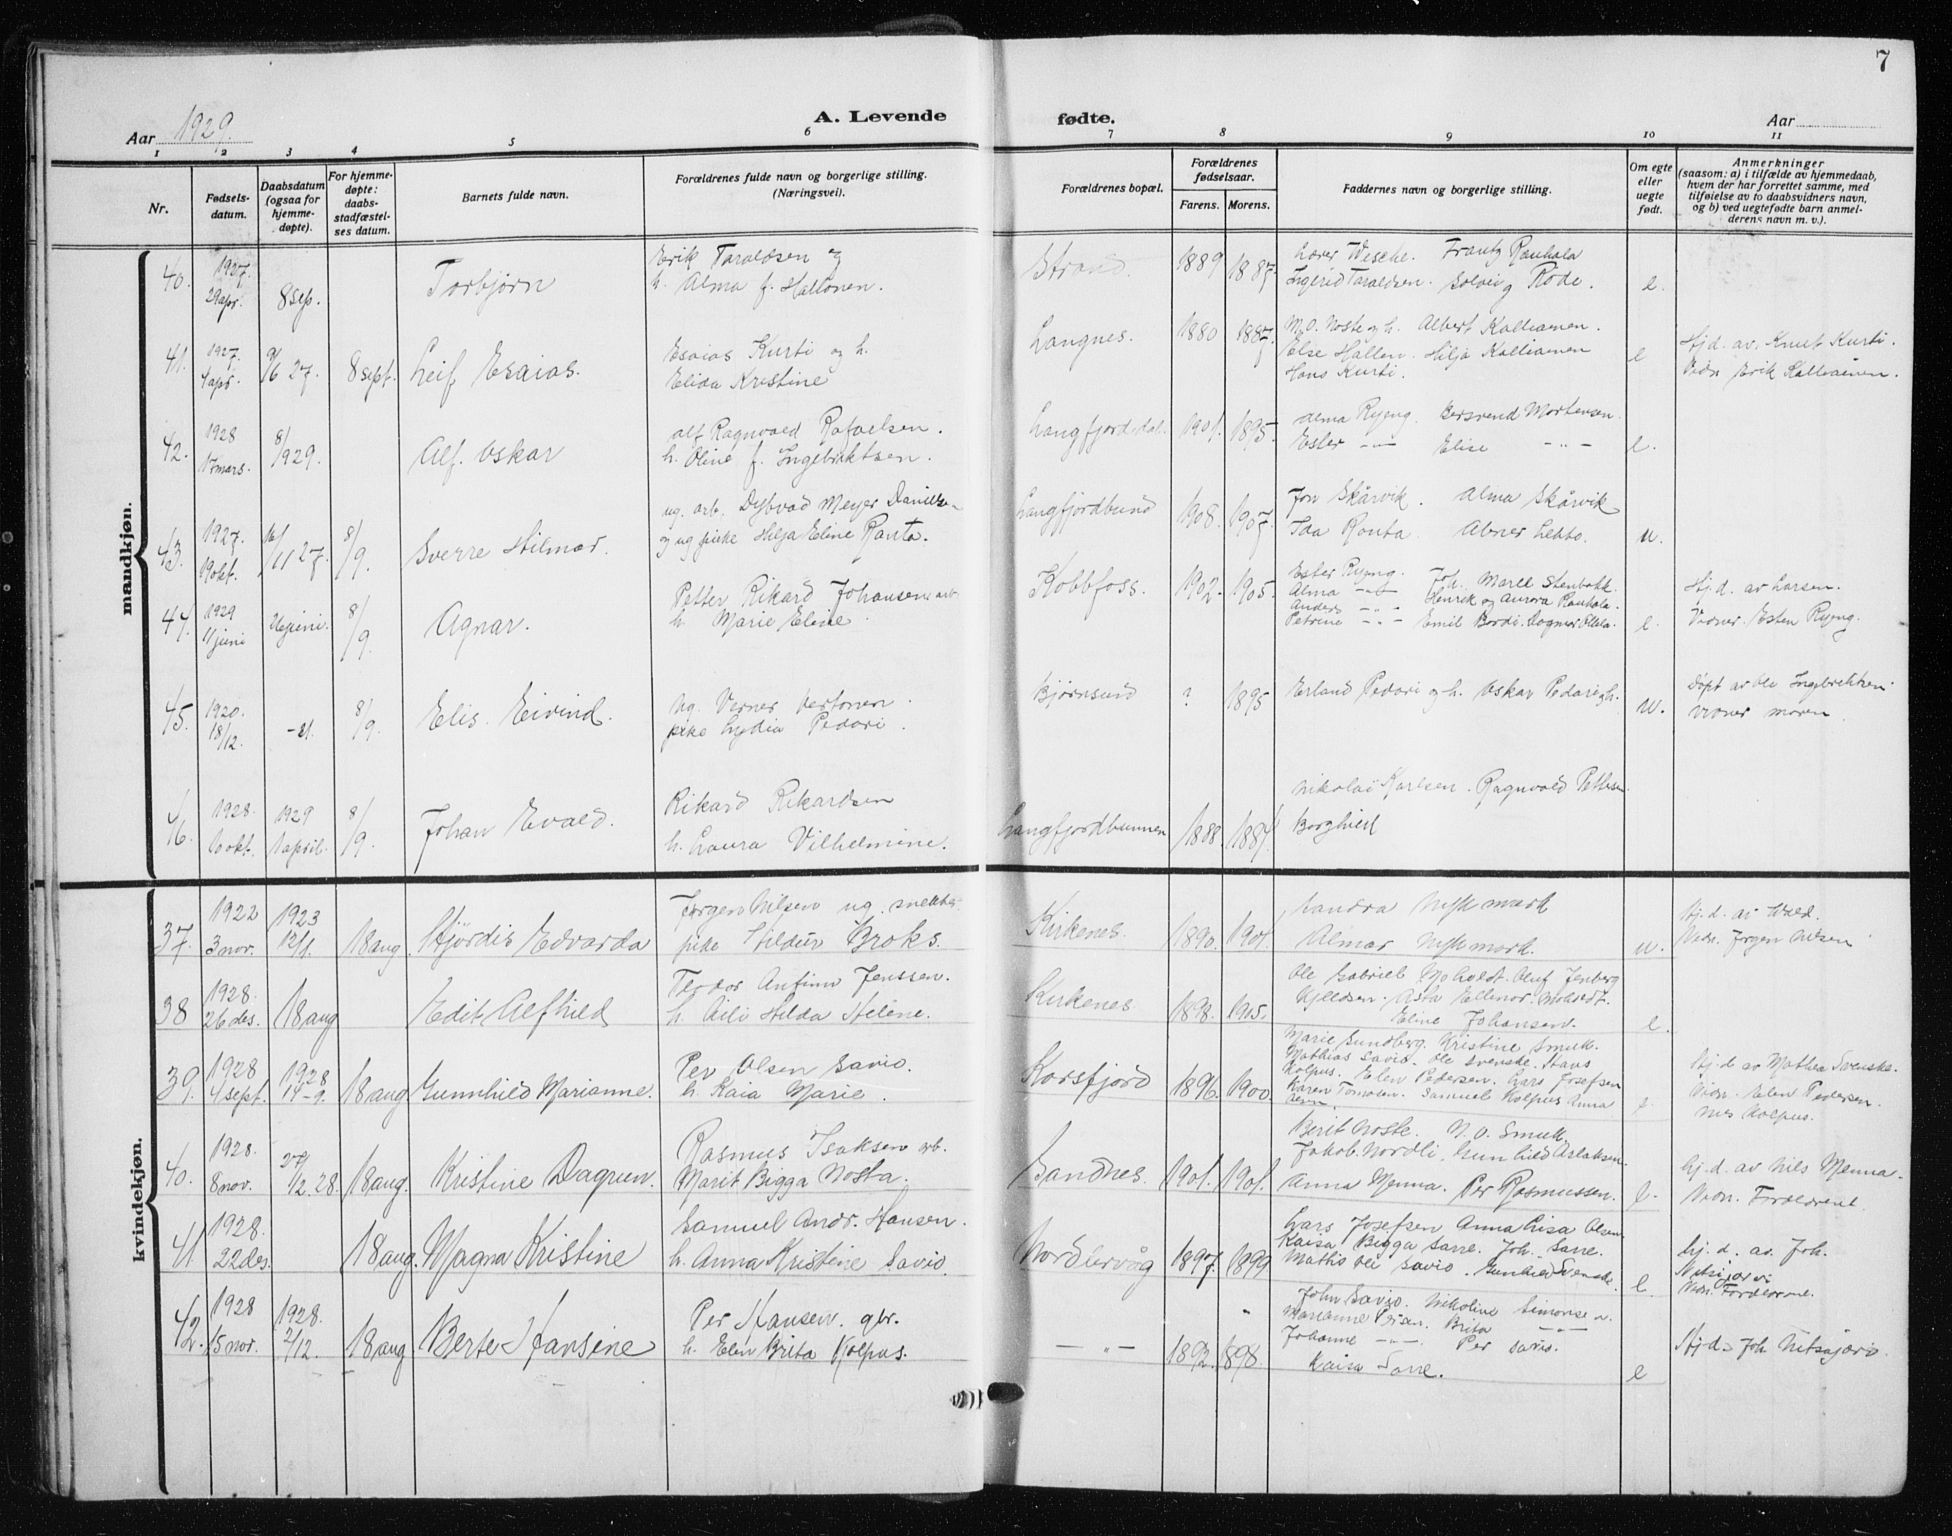 7
Aar 1929.
A. Levende fødte.
Aar
1 2 3 4 5 6 7 8 9 10 11
Nr.
Fødsels-
datum.
Daabsdatum
(ogsaa for
hjemme-
døpte).
For hjemme-
døpte:
daabs-
stadfæstel-
ses datum.
Barnets fulde navn.
Forældrenes fulde navn og borgerlige stilling.
(Næringsvei).
Forældrenes bopæl.
Forældrenes
fødselsaar.
Farens. Morens.
Faddernes navn og borgerlige stilling.
Om egte
eller
uegte
født.
Anmerkninger
(saasom: a) i tilfælde av hjemmedaab,
hvem der har forrettet samme, med
tilføielse av to daabsvidners navn,
og b) ved uegtefødte barn anmel-
derens navn m. v.).
mandkjøn.
40. 1927. 29 apr. 8 sep. Torbjørn
Erik Taraldsen og
h. Alma f. Hallonen.
Strand. 1889 1887
Lærer Wesche. Frantz Rauhala
Ingerid Taraldsen. Solveig Rode. e.
41. 1927. 4 apr. 9/6 27. 8 sept. Leif Esaias.
Esaias Kurti og h.
Elida Kristine
Langnes. 1880 1887
M. O. Noste og h. Albert Kalliainen.
Else Hallen. Hilja Kalliainen
Hans Kurti. e
Hjd. av Knut Kurti.
Vidn Erik Kalliainen.
42. 1928 17 mars. 8/9 29. Alf Oskar
Alf Ragnvald Rafaelsen.
h. Oline f. Ingebriktsen.
Langfjorddal. 1901. 1895.
Alma Ryeng. Bersvend Mortensen.
Ester -"- Elise -"- e.
43. 1927. 19 okt. 16/11 27. 8/9. Sverre Hilmar.
ug. arb. Dybvad Meyer Daniels-
og ug pike Hilja Eline Ranta.
Langfjordbund 1908. 1907.
Jon Skårvik. Alma Skårvik
Ida Ronta. Abner Lebbo. u.
44. 1929 8/9 Agnar.
Petter Rikard Johansen arb
h. Marie Elene
Kobbfoss. 1902. 1905.
Ester Ryeng. Joh. Marel Stenbakk.
Alma -"- Henrik og Aurora Rauhala.
Anders -"-
Petrine -"- Emil Bordi. Dagmar e.
Hj.d. av Larsen.
Vidner. Esten Ryeng.
45. 1920. 18/12. -21. 8/9. Elis. Eivind.
Ug. Verner Vertonen.
pike Lydia Pedari.
Bjørnsund ? 1895
Erland Pedari og h. Oskar Pedari og h. u.
Døpt av Ole Ingebrektsen
vidner moren.
46. 1928. 10 okt. 1929 1 april. 8/9. Johan Evald.
Rikard Rikardsen
h. Laura Vilhelmine.
Langfjordbunnen 1888. 1884.
Nikolai Karlsen. Ragnvald Pettersen
Borghild
kvindekjøn.
37. 1922 3 nov. 1923 12/1. 18 aug. Hjördis Edvarda
Jørgen Nilsen ug. snekker
pike Hildur Broks.
Kirkenes. 1890. 1901.
Sandra Nykmark
Almar Nykmark. u.
Hj.d. av Wald.
Vidn. Jørgen Nilsen
38 1928. 26 des. 18 aug Edit Alfhild
Teodor Antinn Jenssen.
h. Aili Hilda Helene.
Kirkenes 1898. 1905.
Ole Gabriel Moholdt. Oluf Jenberg
Kjeldsen. Asta Ellenor Moholdt.
Eline Johansen. e.
39. 1928 4 sept. 1928 14-9. 18 aug Gunnhild Marianne.
Per Olsen Savio.
h. Kaia Marie.
Korsfjord 1896. 1900.
Marie Sundberg. Kristine Smuk.
Mathias Savio. Ole Svenske. Hans
Kolpus. Elen Pedersen. Lars Josefsen
Karen Tomasen. Samuel Kolpus Anna
e
Hj.d av Mathea Svenske.
Vidn. Elen Pedersen.
Kolpus.
40. 1928. 8 nov. 27/12. 28. 18 aug. Kristine Dagrun.
Rasmus Isaksen arb.
Marit Bigga Nosta.
Sandnes. 1901. 1901.
Berit Noste. N. O. Smuk.
Jakob Nordli. Gunhild Aslaksen.
Anna Menna. Per Rasmussen. e.
hj.d. av Nils Menna.
Vidn. Foreldrene.
41. 1928. 22 des. 18 aug. Magna Kristine
Samuel Andr. Hansen.
h. Anna Kristine Savio.
Nordlervåg 1897. 1899
Lars Josefsen Anna Lisa Olsen
Kaisa Bigga Sarre. Joh. Sarre.
Mathis Ole Savio. Gunhild Svenske e.
hj.d. av. Joh.
Nitsjarvi.
Vidn. Foreldrene.
42. 1928 15 nov. 1928. 2/12. 18 aug Berte Hansine
Per Hansen. gbr.
h. Elen Brita Kjolpus.
-"- 1892. 1898.
John Savio. Nikoline Simonsen.
Marianne Brita -"-
Johanne -"- Per Savio.
Kaisa Sarre. e
Hjd- Joh Nitsajärvi.